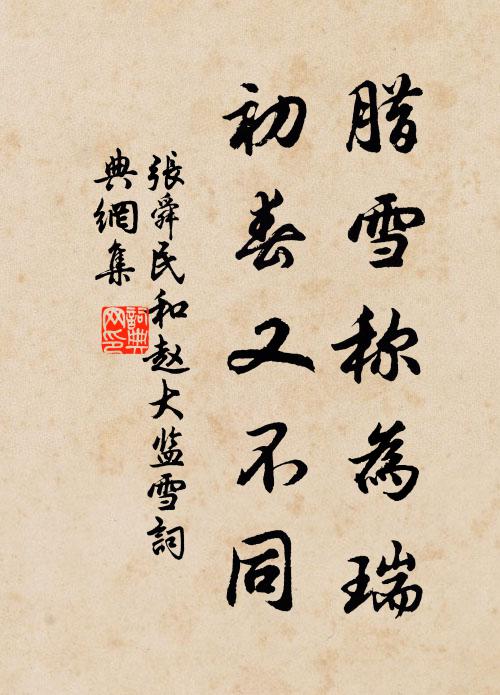 腊雪称为瑞
初春又不同
張舜民和赵大监雪詞
典網集
詞典
网印